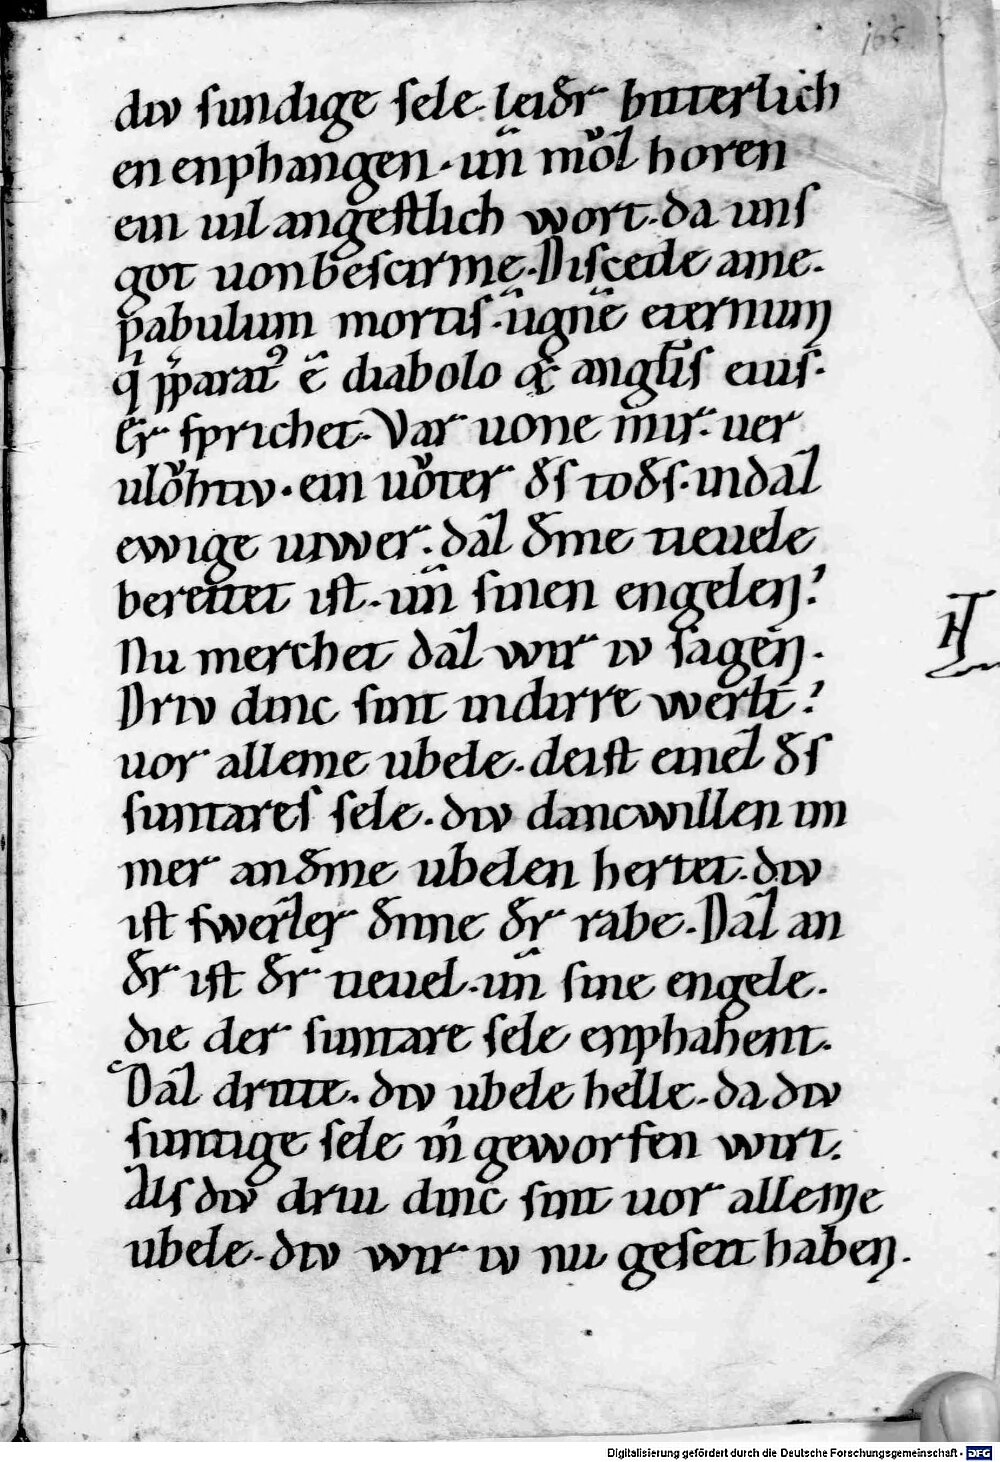 165
diu sundige sele leidͤr bitterlich
en enphangen · un̄ mͦz horen
ein uil angestlich wort · da uns
got uon bescirme · Discede a me ·
pabulum mortis · ī ignē eternum
q̇ p̄parat᷒ ē diabolo & angl̄is eius ·
Er sprichet · Var uone mir · uer
ulͦhtiv · ein uͦter dͤs todͤs · in daz
ewige uiwer · daz dͤme tieuele
bereitet ist · un̄ sinen engelen ?
Nu merchet daz wir iv sagen ·
Driv dinc sint in dirre werlt ?
uor alleme ubele · deist einez dͤs
suntares sele · div danc willen im
mer an dͤme ubelen hertet · div
ist swerzer dͤnne dͤr rabe · Daz an
dͤr ist dͤr tieuel · un̄ sine engele ·
die der suntare sele enphahent ·
Daz dritte · div ubele helle · da div
suntige sele in geworfen wirt ·
Als div driu dinc sint uor alleme
ubele · div wir iv nu geseit haben ·
Digitalisierung gefördert durch die Deutsche Forschungsgemeinschaft - DFG